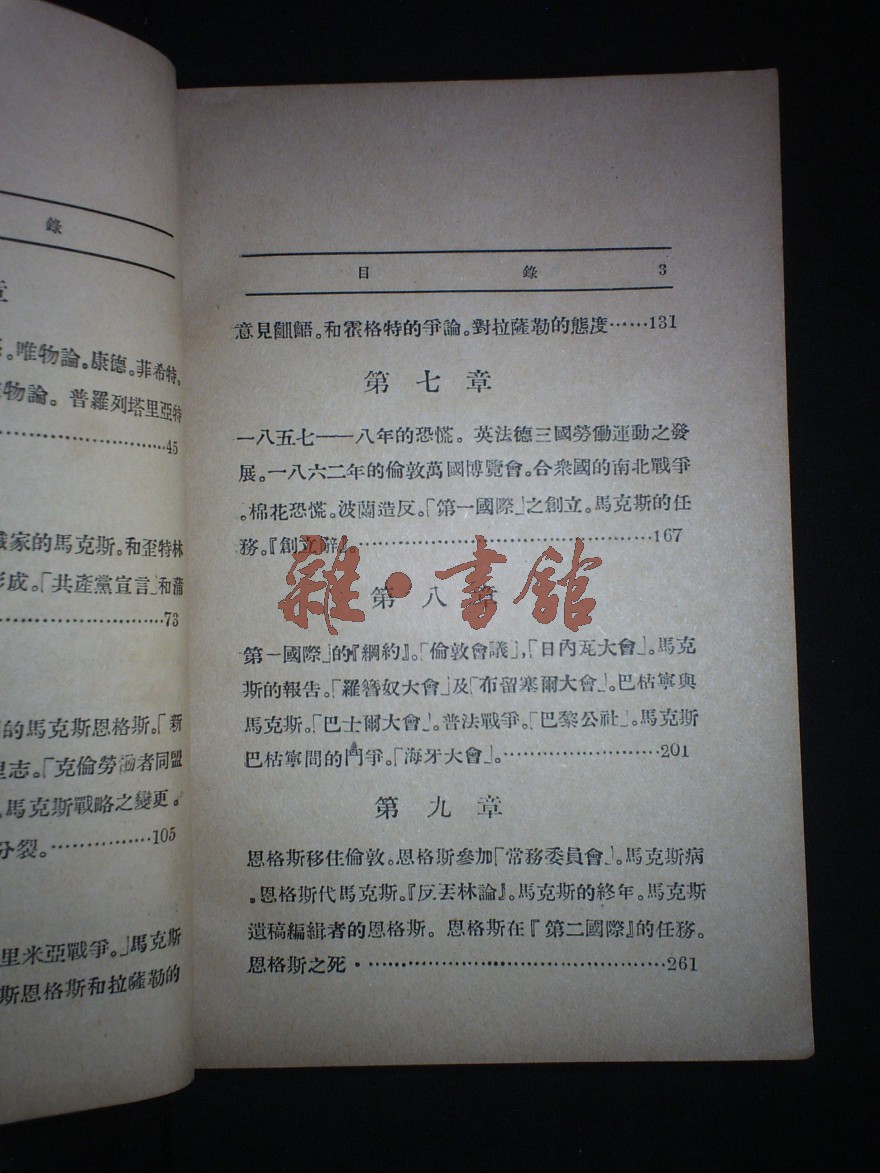 錄
章
。唯物論。康德。菲希特。
物論。普羅列塔里亞特
45
家的馬克斯。和歪特林
形成。「共產黨宣言」和蒲
73
的馬克斯恩格斯。「新
志。「克倫勞働者同盟
馬克斯戰略之變更。
分裂。……………105
里米亞戰爭。」馬克斯
斯恩格斯和拉薩勒的
目錄 3
意見齟齬。和霍格特的爭論。對拉薩勒的態度……131
第七章
一八五七——八年的恐慌。英法德三國勞働運動之發
展。一八六二年的倫敦萬國博覽會。合衆國的南北戰爭
。棉花恐慌。波蘭造反。「第一國際」之創立。馬克斯的任
務。『創立辭』。………………………………………167
雜·書館
第八章
第一國際」的『綱約』。「倫敦會議」,「日內瓦大會」。馬克
斯的報告。「羅簪奴大會」及「布留塞爾大會」。巴枯寧與
馬克斯。「巴士爾大會」。普法戰爭。「巴黎公社」。馬克斯
巴枯寧間的鬥爭。「海牙大會」。……………………201
第九章
恩格斯移住倫敦。恩格斯參加「常務委員會」。馬克斯病
。恩格斯代馬克斯。『反丟林論』。馬克斯的終年。馬克斯
遺稿編緝者的恩格斯。恩格斯在『第二國際』的任務。
恩格斯之死·………………………………………261